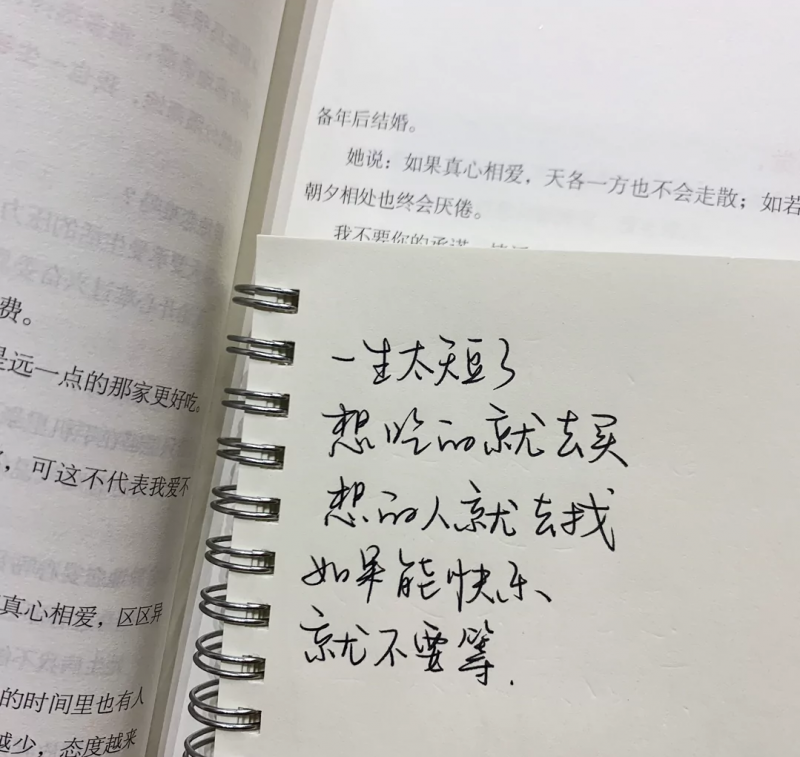 备年后结婚。
她说：如果真心相爱，天各一方也不会走散；如若
朝夕相处也终会厌倦。
我不要你的承诺
费。
是远一点的那家更好吃。
，可这不代表我爱不
真心相爱，区区异
的时间里也有人
越少，态度越来
一生太短了
想吃的就去买
想的人就去找
如果能快乐、
就不要等.